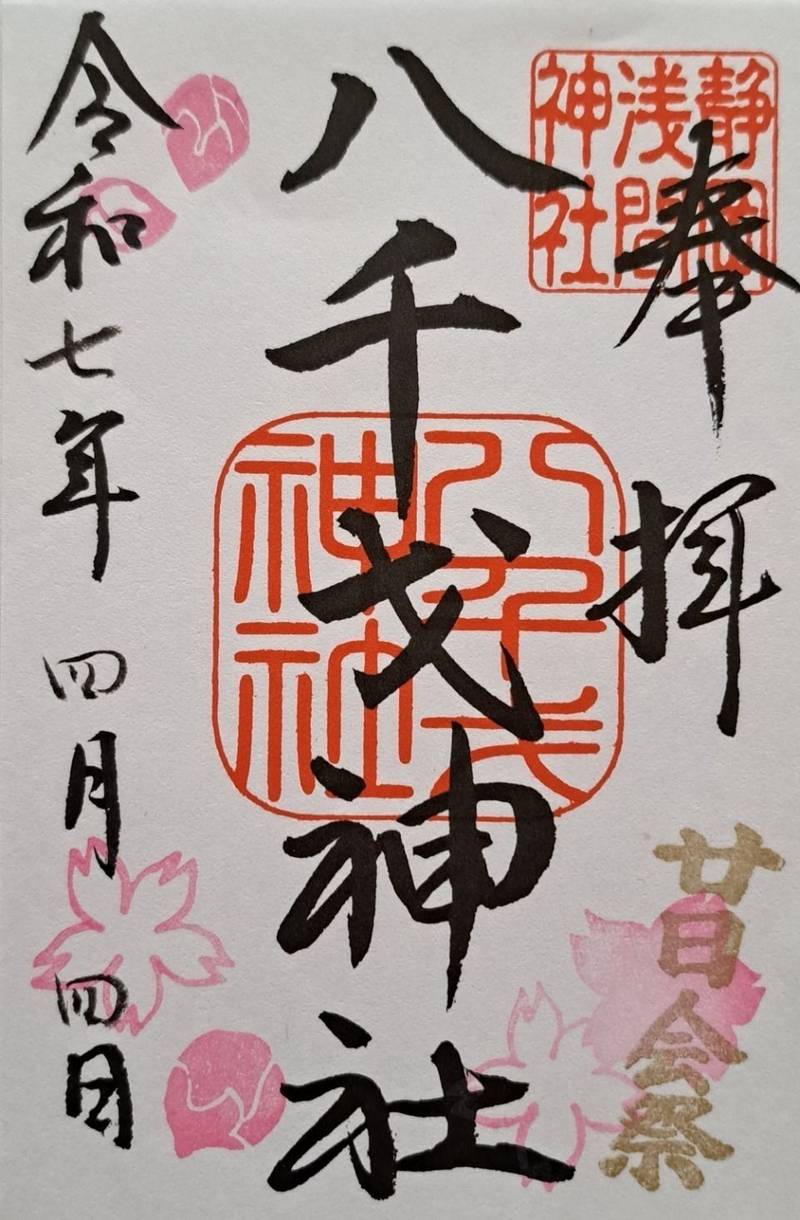 奉拝
静岡
浅間
神社
八千戈神社
八千戈
神社
令和七年 四月 四日
廿日会祭